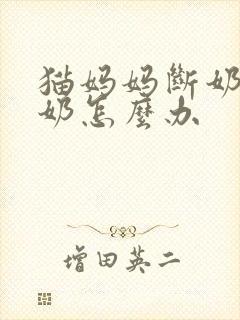 猫妈妈斷奶
奶怎麼办
增田英二